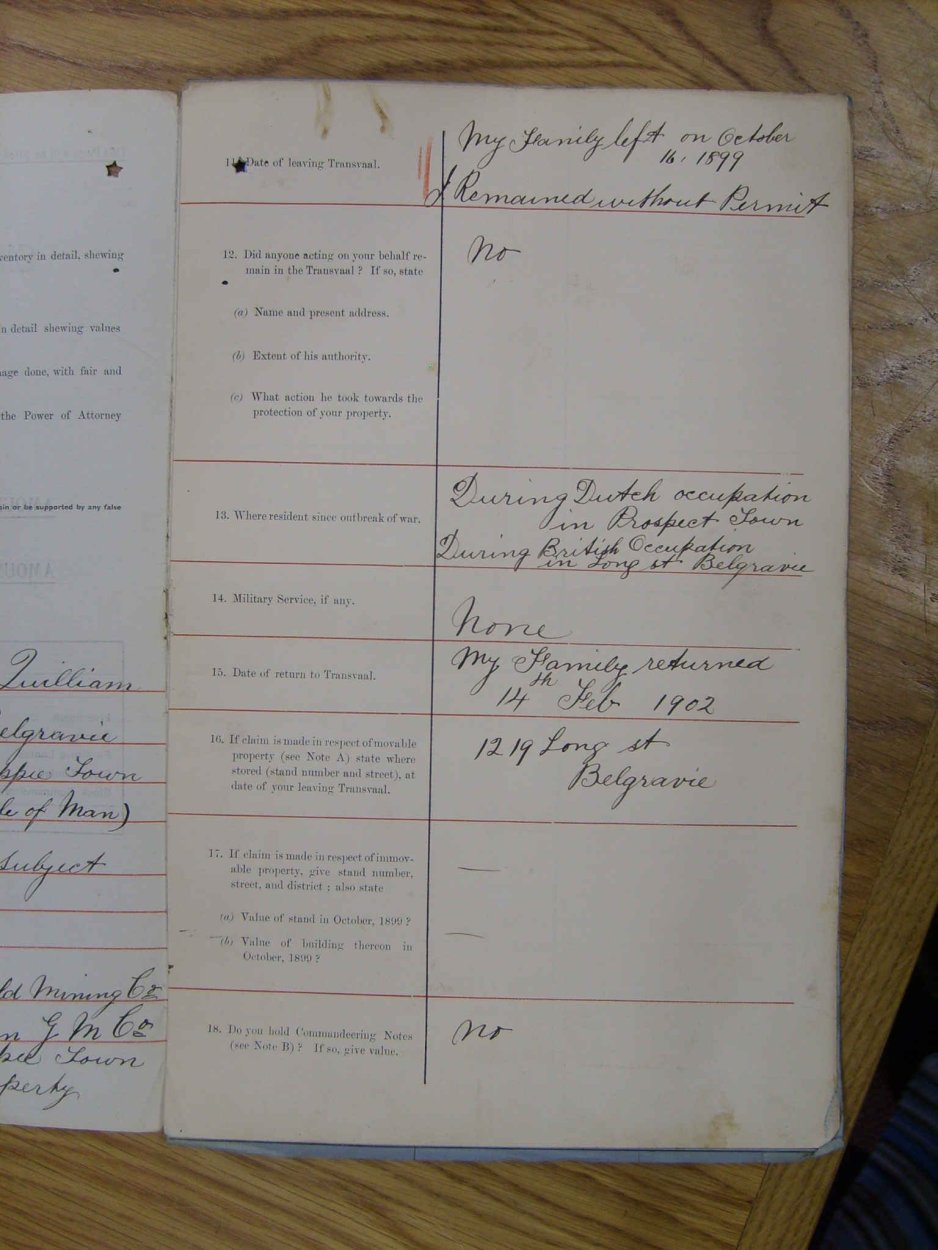 ventory in detail, shewing
n detail shewing values
age done, with fair and
the Power of Attorney
in or be supported by any false
Quilliam
elgravie
ppie Town
le of Man)
Subject
ld Mining Co
n G M Co
pie Town
perty
11. Date of leaving Transvaal.
My Family left on October
16. 1899
I Remained without Permit
12. Did anyone acting on your behalf re-
main in the Transvaal? If so, state
No
(a) Name and present address.
(b) Extent of his authority.
(c) What action he took towards the
protection of your property.
13. Where resident since outbreak of war.
During Dutch occupation
in Prospect Town
During British Occupation
in Long st Belgravie
14. Military Service, if any.
None
15. Date of return to Transvaal.
My Family returned
14th Feb 1902
16. If claim is made in respect of movable
property (see Note A) state where
stored (stand number and street), at
date of your leaving Transvaal.
1219 Long st
Belgravie
17. If claim is made in respect of immov-
able property, give stand number,
street, and district; also state
(a) Value of stand in October, 1899?
(b) Value of building thereon in
October, 1899?
18. Do you hold Commandeering Notes
(see Note B)? If so, give value.
No